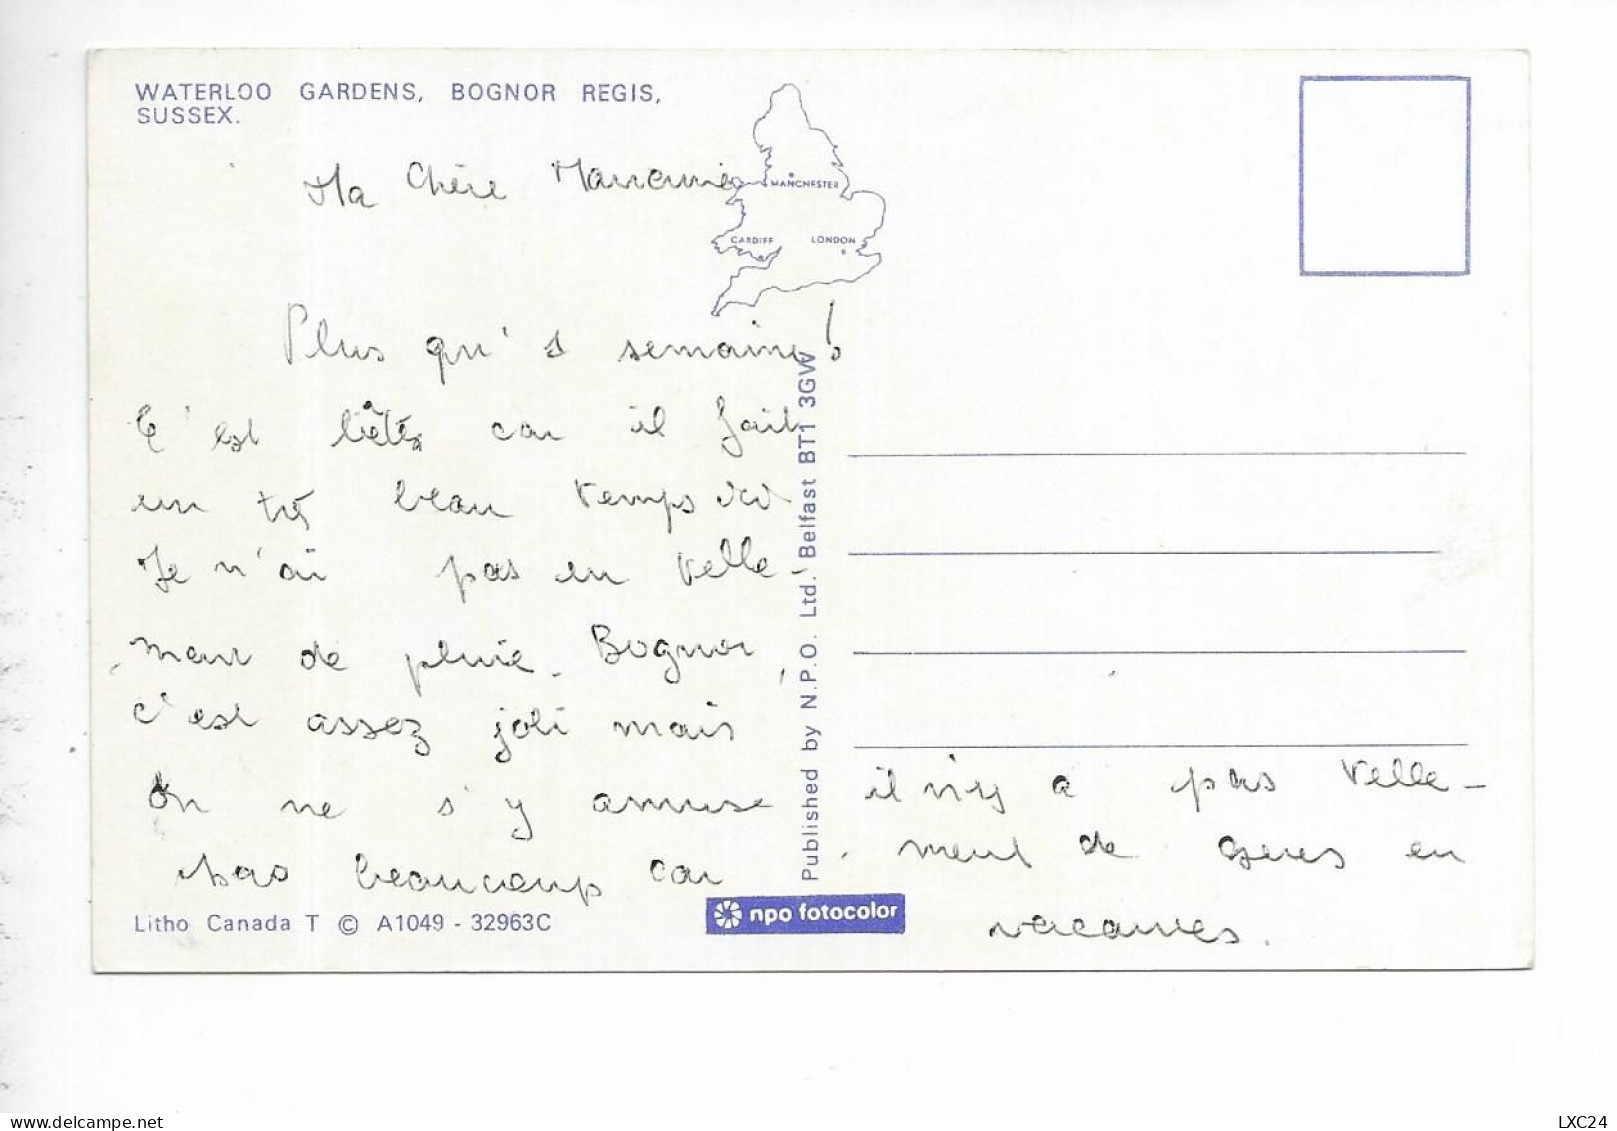 WATERLOO GARDENS, BOGNOR REGIS,
SUSSEX.
MANCHESTER
CARDIFF LONDON
Ma Chère
Plus qu' 1 semaine!
C'est car il fait
un très beau temps ici
Je n'ai pas eu telle-
ment de pluie. Bognor,
c'est assez joli mais
on ne s'y amuse
pas beaucoup car
il n'y a pas telle-
ment de gens en
vacances.
Published by N.P.O. Ltd. Belfast BT1 3GW
Litho Canada T © A1049 - 32963C
npo fotocolor
delcampe.net
LXC24